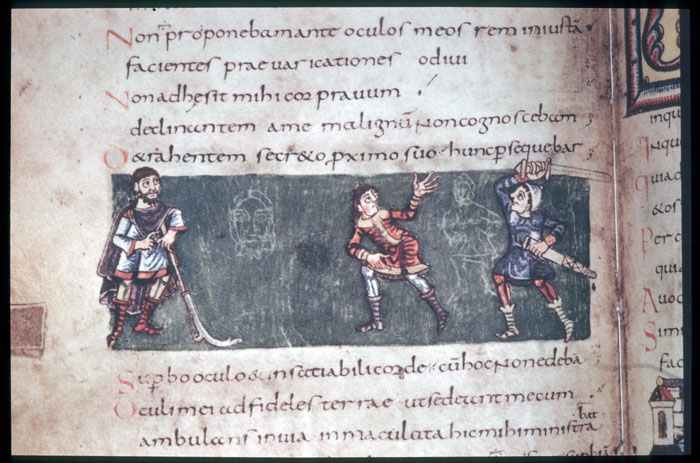 Non proponebam ante oculos meos rem iniustā
facientes praevaricationes odivi
Non adhesit mihi cor pravum
declinantem a me malignū non cognoscebam
D&rahentem secr&o proximo suo · hunc persequebar
Superbo oculo & insatiabili corde · cū hoc non edeba
Oculi mei ad fideles terrae ut sedeant mecum
bat
ambulans in via inmaculata hic mihi ministra
inqu
Inqu
quia
&os
Per c
quia
Avoc
Si
fac